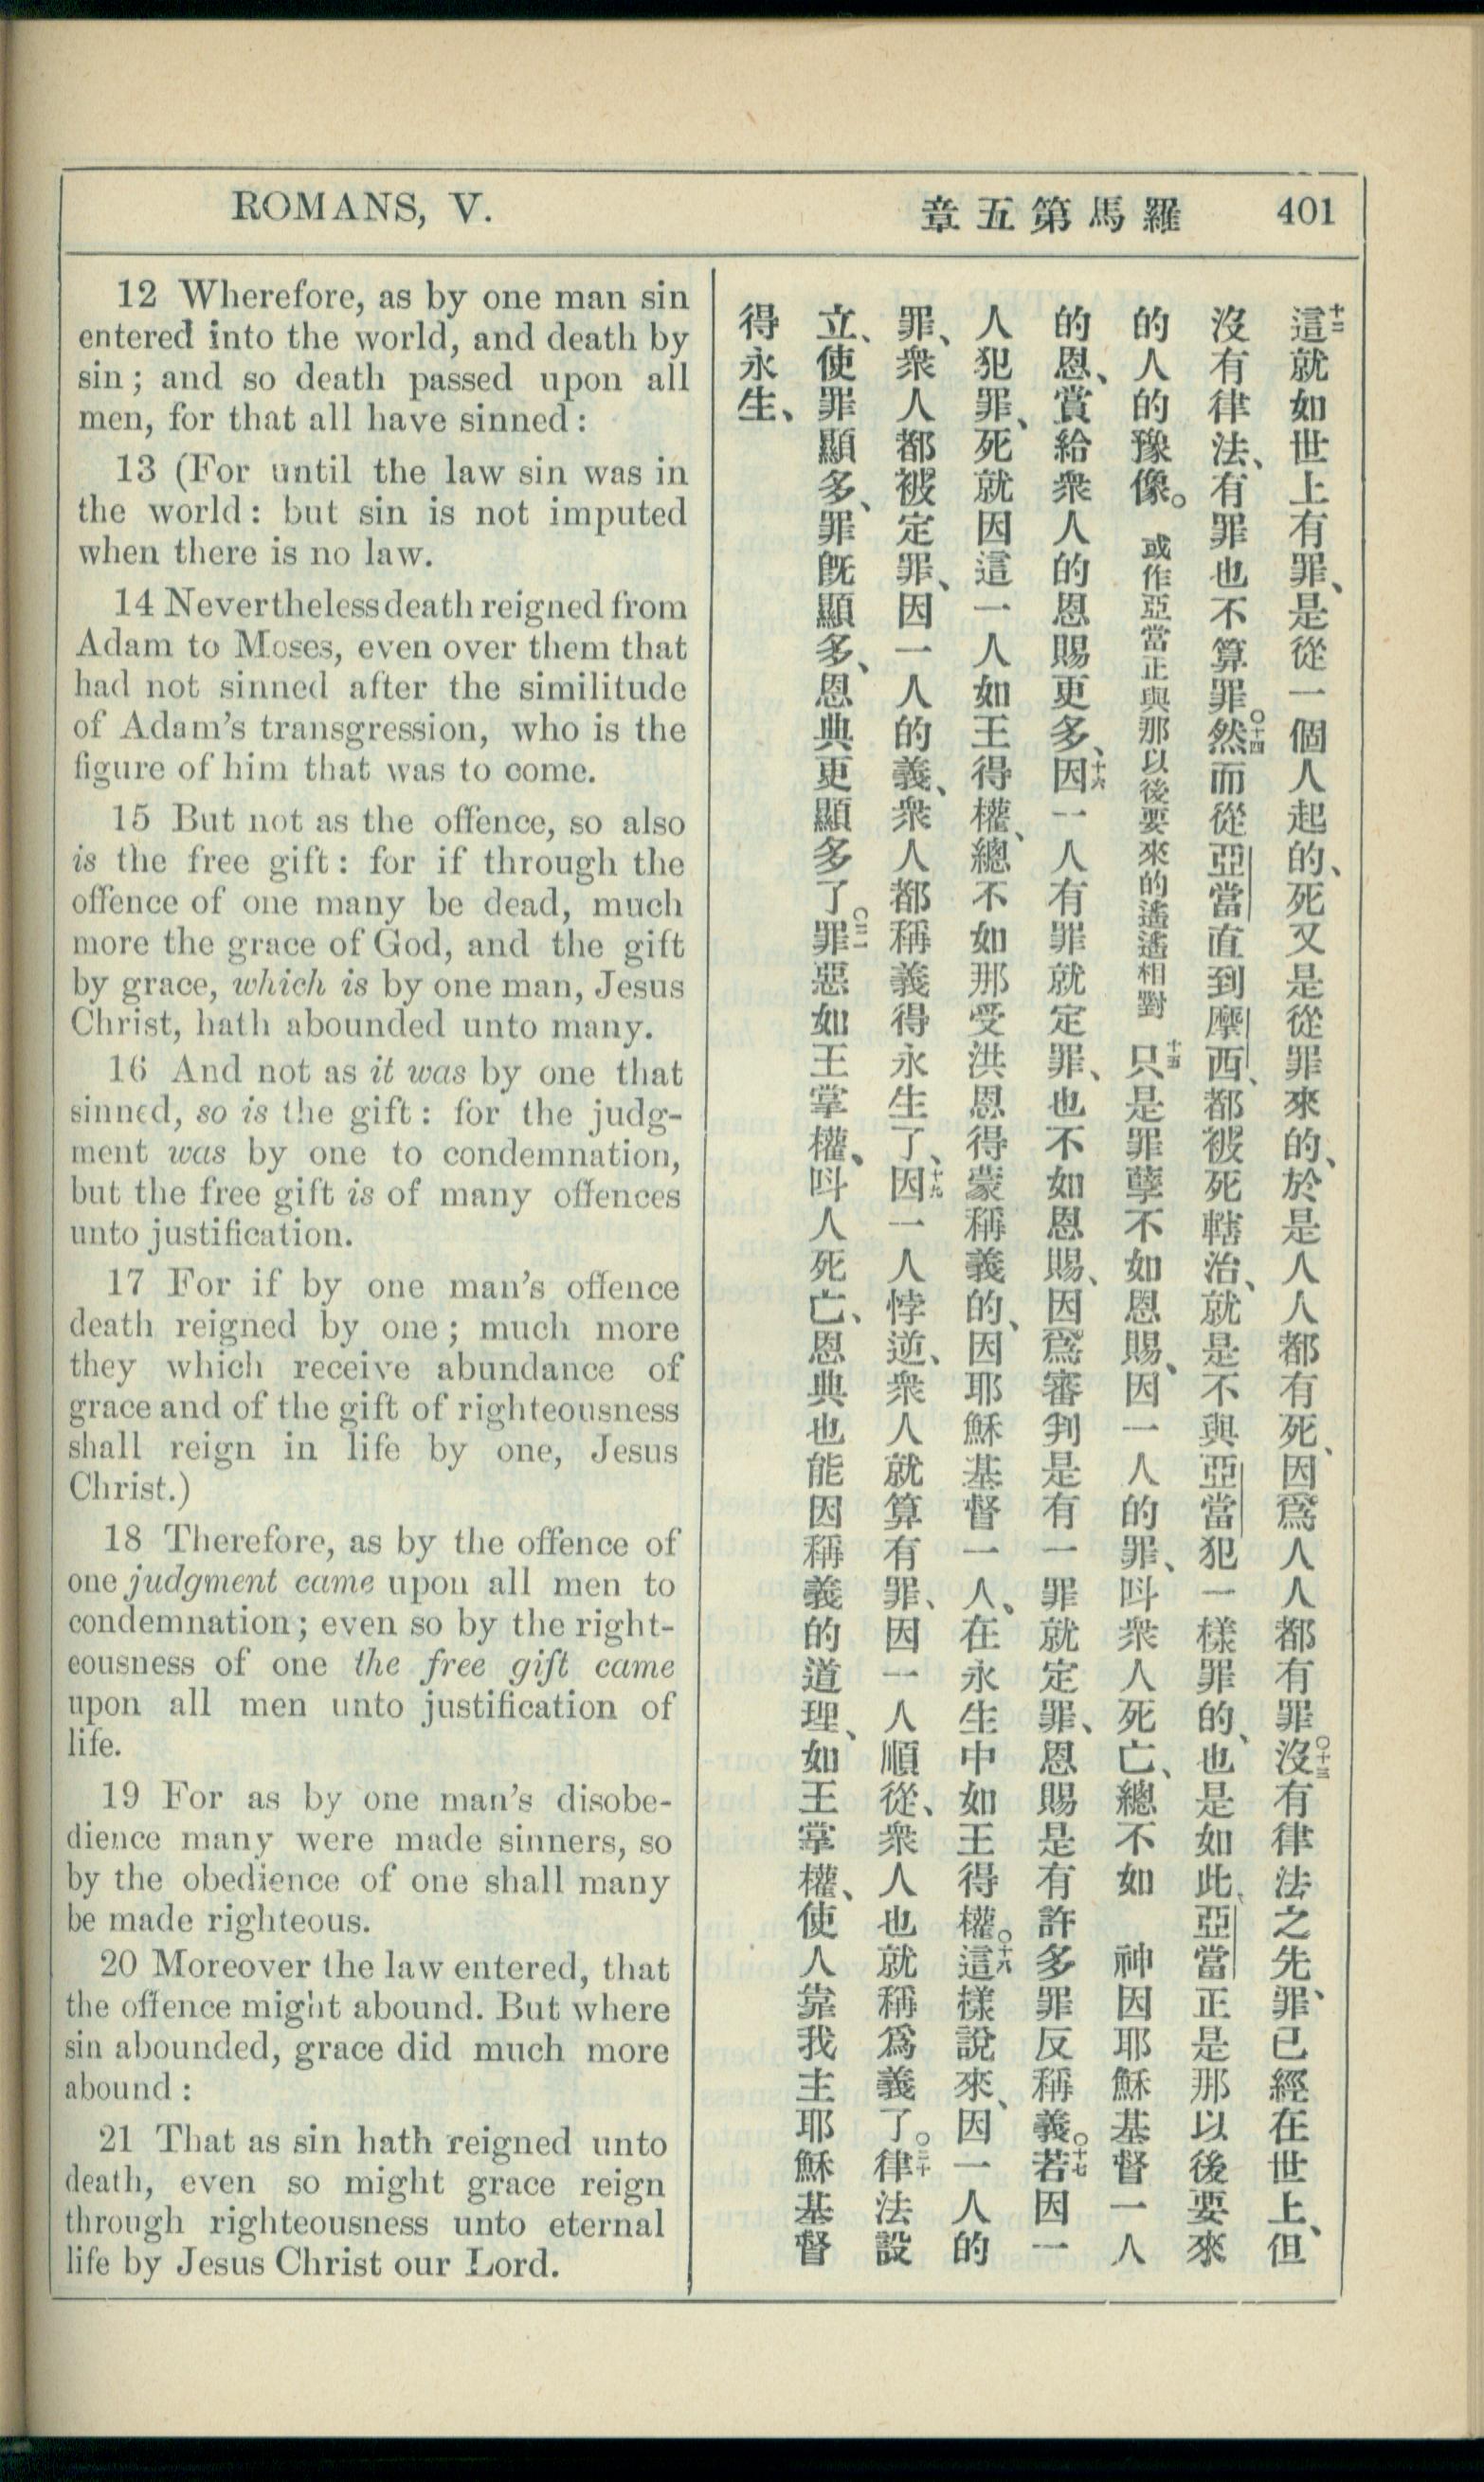 ROMANS, V.
章五第馬羅
401
12 Wherefore, as by one man sin
entered into the world, and death by
sin; and so death passed upon all
men, for that all have sinned:
13 (For until the law sin was in
the world: but sin is not imputed
when there is no law.
14 Nevertheless death reigned from
Adam to Moses, even over them that
had not sinned after the similitude
of Adam's transgression, who is the
figure of him that was to come.
15 But not as the offence, so also
is the free gift: for if through the
offence of one many be dead, much
more the grace of God, and the gift
by grace, which is by one man, Jesus
Christ, hath abounded unto many.
16 And not as it was by one that
sinned, so is the gift: for the judg-
ment was by one to condemnation,
but the free gift is of many offences
unto justification.
17 For if by one man's offence
death reigned by one; much more
they which receive abundance of
grace and of the gift of righteousness
shall reign in life by one, Jesus
Christ.)
18 Therefore, as by the offence of
one judgment came upon all men to
condemnation; even so by the right-
eousness of one the free gift came
upon all men unto justification of
life.
19 For as by one man's disobe-
dience many were made sinners, so
by the obedience of one shall many
be made righteous.
20 Moreover the law entered, that
the offence might abound. But where
sin abounded, grace did much more
abound:
21 That as sin hath reigned unto
death, even so might grace reign
through righteousness unto eternal
life by Jesus Christ our Lord.
十二這就如世上有罪、是從一個人起的、死又是從罪來的、於是人人都有死、因爲人人都有罪。十三沒有律法之先、罪已經在世上、但
沒有律法、有罪也不算罪。十四然而從亞當直到摩西、都被死轄治、就是不與亞當犯一樣罪的、也是如此、亞當正是那以後要來
的人的豫像。或作亞當正與那以後要來的遙遙相對 十五只是罪孽不如恩賜、因一人的罪、呌衆人死亡、總不如 神因耶穌基督一人
的恩、賞給衆人的恩賜更多、十六因一人有罪就定罪、也不如恩賜、因爲審判是有一罪就定罪、恩賜是有許多罪反稱義。十七若因一
人犯罪、死就因這一人如王得權、總不如那受洪恩得蒙稱義的、因耶穌基督一人、在永生中如王得權。十八這樣說來、因一人的
罪、衆人都被定罪、因一人的義、衆人都稱義得永生了、十九因一人悖逆、衆人就算有罪、因一人順從、衆人也就稱爲義了。二十律法設
立、使罪顯多、罪旣顯多、恩典更顯多了。二一罪惡如王掌權、呌人死亡、恩典也能因稱義的道理、如王掌權、使人靠我主耶穌基督
得永生、